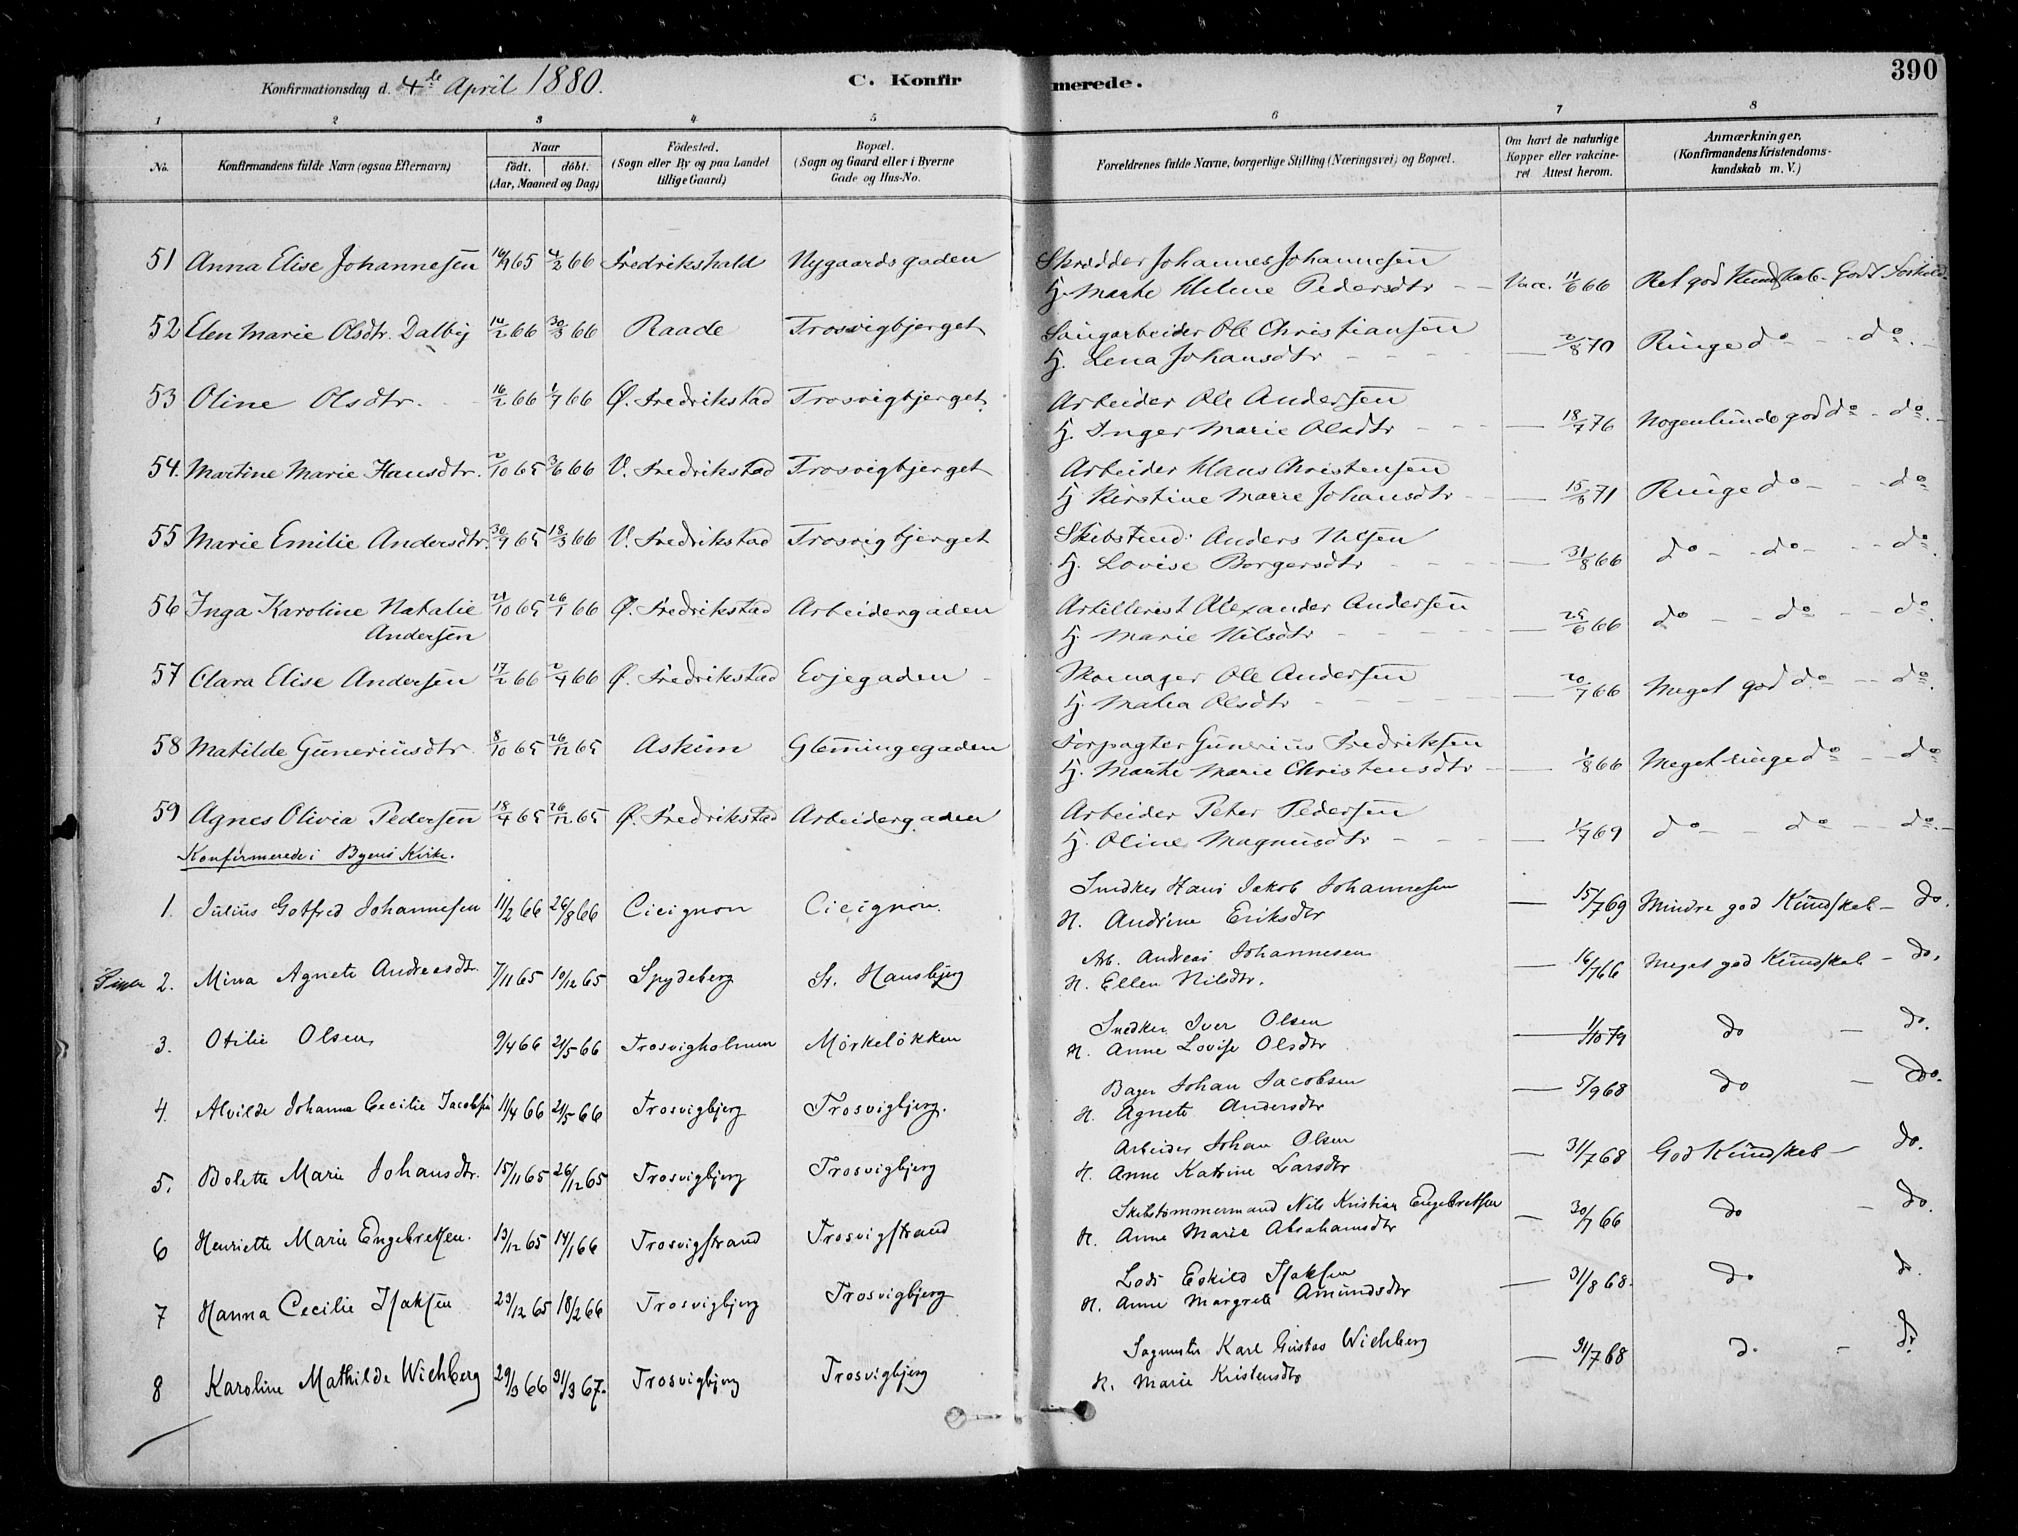 Konfirmationsdag d. 4de April 1880.
C. Konfirmerede.
390
1 2 3 4 5 6 7 8
No.
Konfirmandens fulde Navn (ogsaa Efternavn)
Naar
födt. döbt.
(Aar, Maaned og Dag)
Födested.
(Sogn eller By og paa Landet
tillige Gaard)
Bopæl.
(Sogn og Gaard eller i Byerne
Gade og Hus-No.
Forældrenes fulde Navne, borgerlige Stilling (Næringsvei) og Bopæl.
Om havt de naturlige
Kopper eller vakcine-
ret Attest herom.
Anmærkninger.
(Konfirmandens Kristendoms-
kundskab m. V.)
51 Anna Elise Johannesen 65 4/2 66 Fredrikshald Nygaardsgaden Skrædder Johannes Johannesen
H. Marthe Helene Pedersdtr - - Vacc. 11/6 66 Ret god Kundskab - Godt Forhold
52 Elen Marie Olsdtr. Dalby 66 30/3 66 Raade Trosvigbjerget Saugarbeider Ole Christiansen
H. Lena Johansdtr - - - - — 2/8 70 Ringe do - - do -
53 Oline Olsdtr. 16/2 66 1/7 66 Ø. Fredrikstad Trosvigbjerget Arbeider Ole Andersen
H. Inger Marie Olsdtr - - - — 18/7 76 Nogenlunde god do - do -
54. Martine Marie Hansdtr. 2/10 65 3/6 66 V. Fredrikstad Trosvigbjerget Arbeider Hans Christensen
H. Kirstine Marie Johansdtr - — 15/8 71 Ringe do - - do
55 Marie Emilie Andersdtr. 30/9 65 18/3 66 V. Fredrikstad Trosvigbjerget Skibstmd. Anders Nilsen
H. Lovise Borgersdtr - - - — 31/8 66 do - - do - - do
56 Inga Karoline Natalie 65 26/1 66 Ø. Fredrikstad Arbeidergaden Artillerist Alexander Andersen
Andersen H. Marie Nilsdtr - - - - — 25/6 66 do - - do - - do
57 Clara Elise Andersen 17/2 66 2/4 66 Ø. Fredrikstad Evjegaden - Skomager Ole Andersen
H. Malia Olsdtr - - - - — 20/7 66 Meget god do - - do.
58 Matilde Guneriusdtr. 8/10 65 26/12 65 Askim Glemmingegaden Forpagter Gunerius Fredriksen
H. Marthe Marie Christensdtr - — 1/8 66 Meget ringe do - - do
59 Agnes Olivia Pedersen 18/4 65 26/12 65 Ø. Fredrikstad Arbeidergaden Arbeider Peter Pedersen
H. Oline Magnusdtr - - - — 1/7 69 do - - do - - do -
Konfirmerede i Byens Kirke.
1. Julius Gotfred Johannesen 11/2 66 26/8 66 Cicignon Cicignon. Snedker Hans Jakob Johannesen
H. Andrine Eriksdtr — 15/7 69 Mindre god Kundskab - do.
2. Mina Agnete Andreasdtr. 7/11 65 10/12 65 Spydeberg St. Hansbjerg Arb. Andreas Johannesen
H. Ellen Nilsdtr. — 16/7 66 Meget god Kundskab - do.
3. Otilie Olsen 9/4 66 21/5 66 Trosvigholmen Mørkeløkken Snedker Iver Olsen
H. Anne Lovise Olsdtr — 1/10 79 do - do.
4. Alvilde Johanna Cecilie Jacobsen 11/4 66 21/5 66 Trosvigbjerg Trosvigbjerg. Bager Johan Jacobsen
H. Agnete Andersdtr — 5/9 68 do - do.
5. Bolette Marie Johansdtr. 15/11 65 26/12 65 Trosvigbjerg Trosvigbjerg Arbeider Johan Olsen
H. Anne Katrine Larsdtr — 31/7 68 God Kundskab - do.
6 Henriette Marie Engebretsen. 13/12 65 14/1 66 Trosvigstrand Trosvigstrand Skibstømmermand Nils Kristian Engebretsen
H. Anne Marie Abrahamsdtr — 30/7 66 do - do.
7 Hanna Cecilie Isaksen 23/12 65 18/2 66 Trosvigbjerg Trosvigbjerg Lods Eskild Isaksen
H. Anne Margrete Amundsdtr — 31/8 68. do do
8 Karoline Mathilde Wichberg 29/3 66 31/3 67. Trosvigbjerg Trosvigbjerg Sagmester Karl Gustav Wichberg
H. Marie Kristensdtr — 31/7 68 do - do